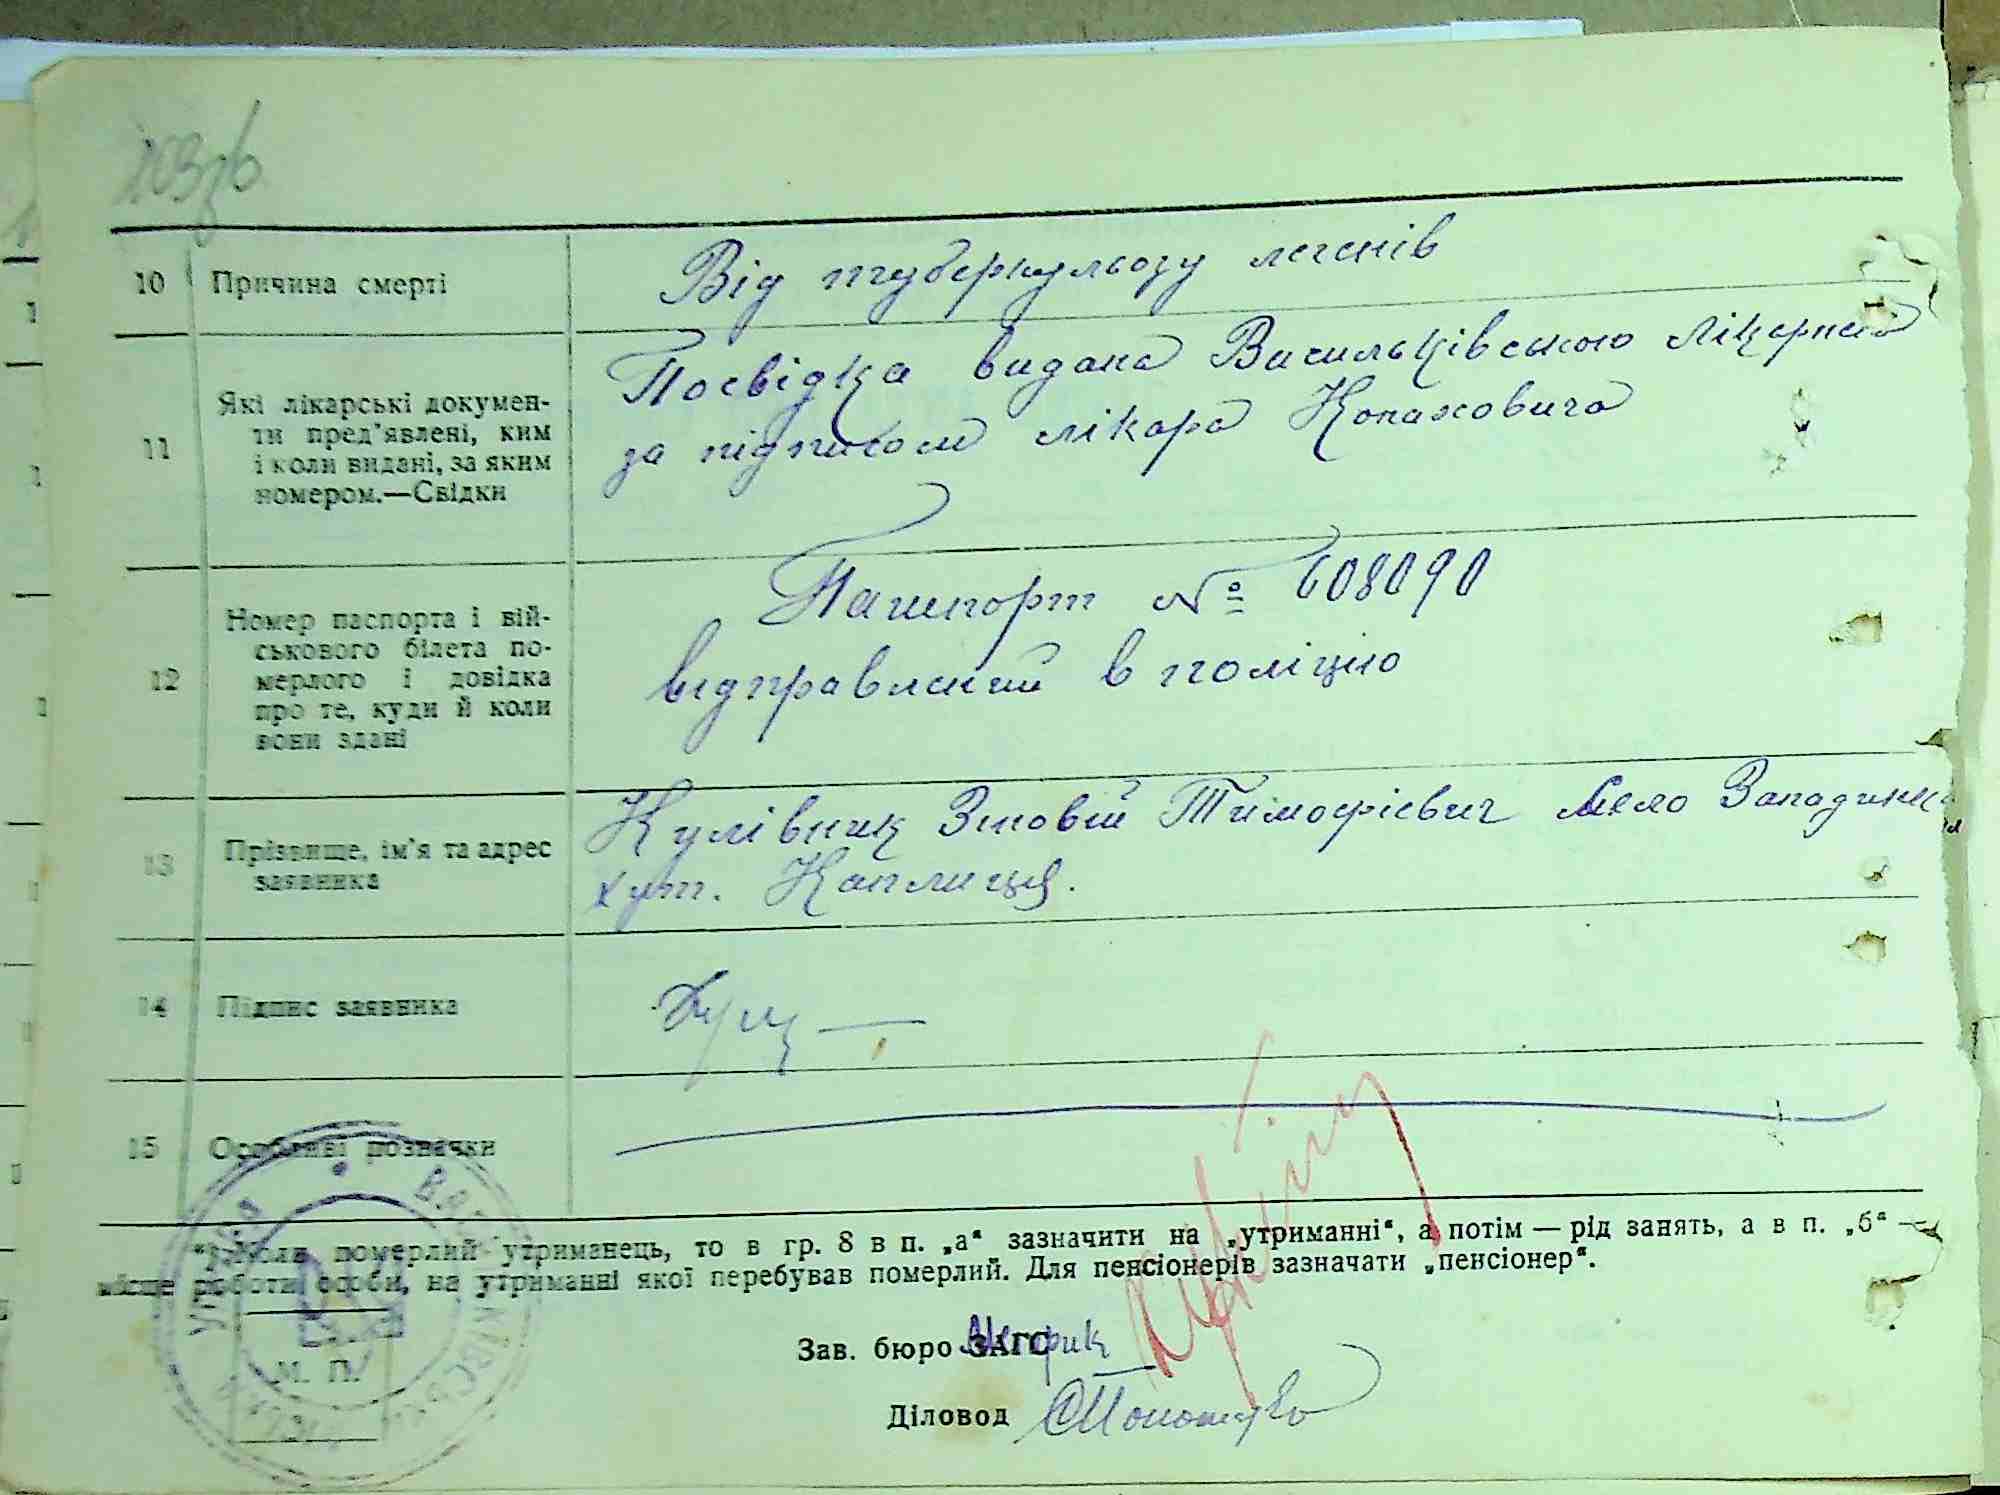 203зб
10 Причина смерті
Від туберкульозу легенів
11 Які лікарські докумен-
ти пред'явлені, ким
і коли видані, за яким
номером.—Свідки
Посвідка видана Васильківською лікарнею
за підписом лікаря
12 Номер паспорта і вій-
ськового білета по-
мерлого і довідка
про те, куди й коли
вони здані
Пашпорт № 608090
відправлений в поліцію
13 Прізвище, ім'я та адрес
заявника
Кулівник Зіновій Тимофієвич село Западинка
хут. Каплиця.
14 Підпис заявника
15 Особливі позначки
*) Коли померлий утриманець, то в гр. 8 в п. „а“ зазначити на „утриманні“, а потім — рід занять, а в п. „б“ —
місце роботи особи, на утриманні якої перебував померлий. Для пенсіонерів зазначати „пенсіонер“.
Зав. бюро ЗАГС
М. П.
Діловод